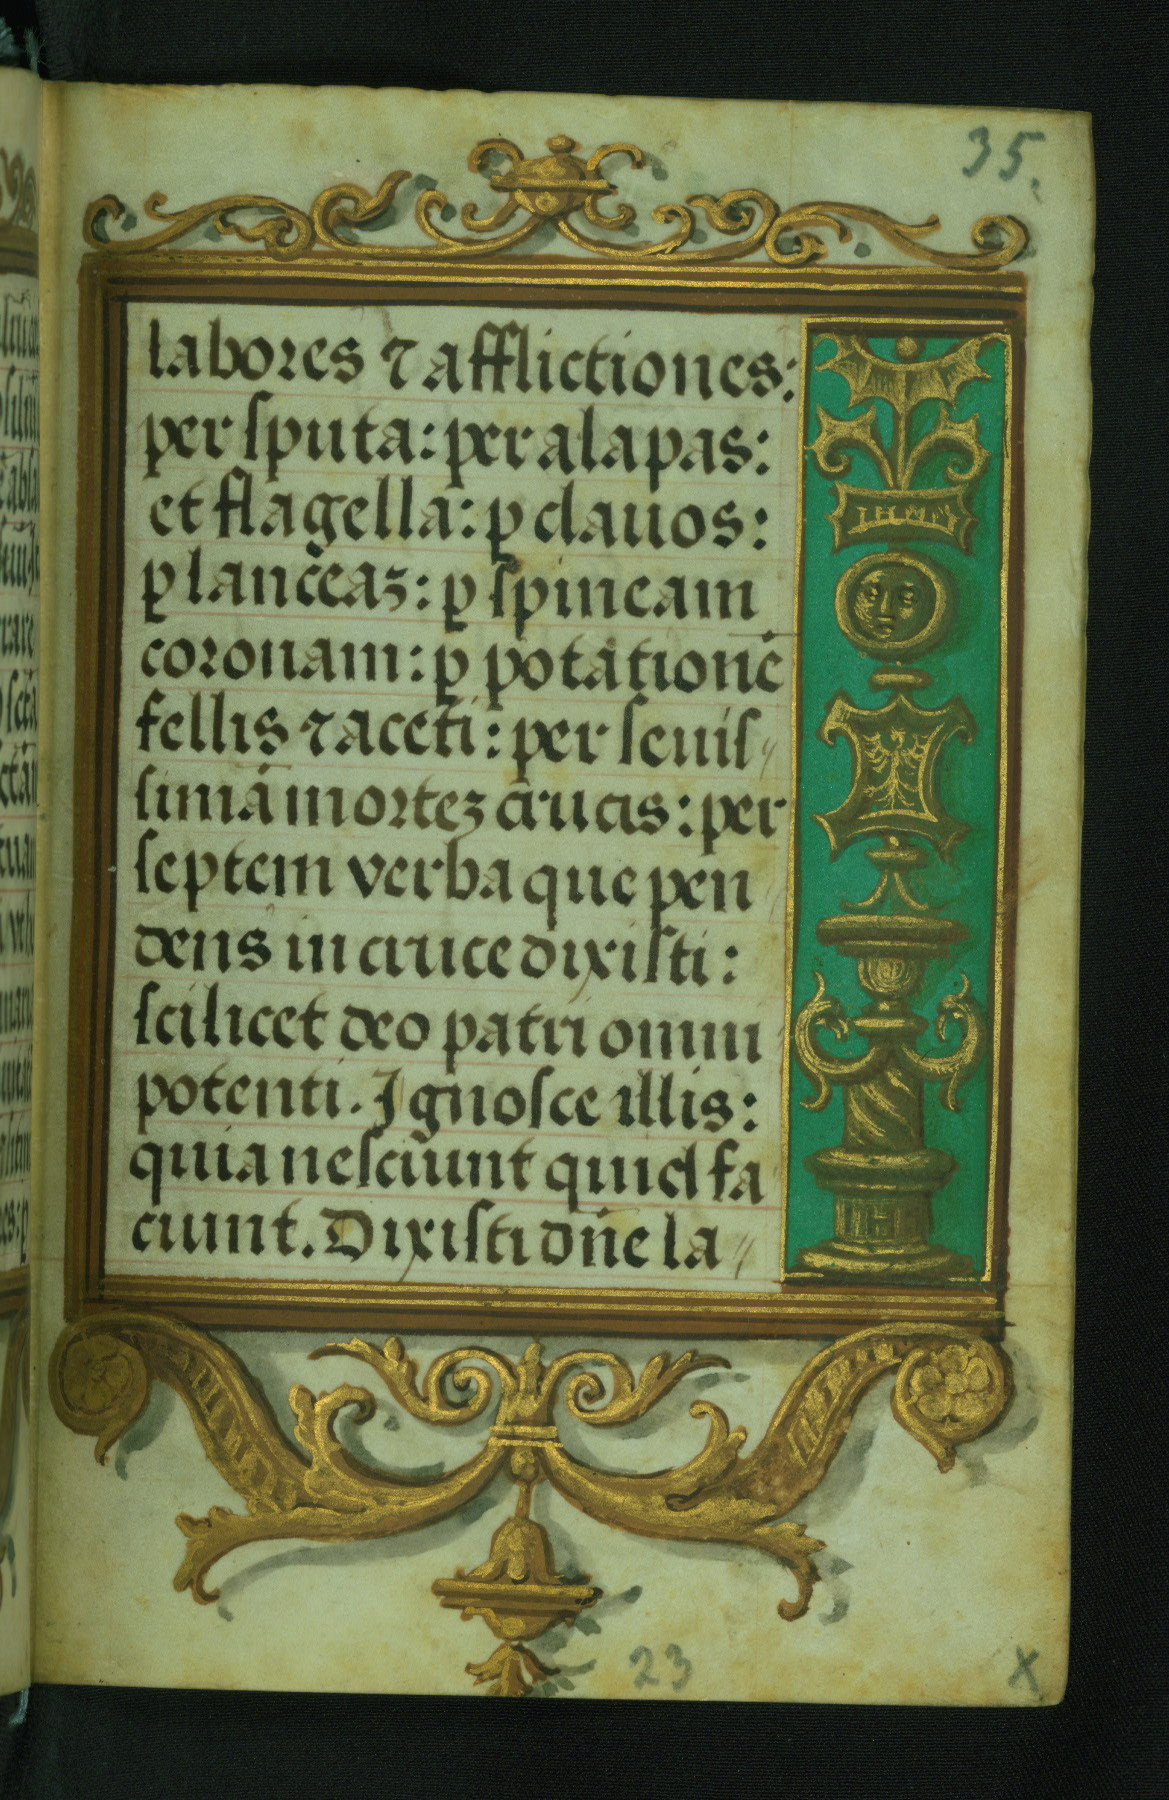 35.
labores ⁊ afflictiones:
per ſputa: per alapas:
et flagella: ꝑ clauos:
ꝑ lanceaꝫ: ꝑ ſpineam
coronam: ꝑ potationē
fellis ⁊ aceti: per ſeuiſ〃
ſimā morteꝫ crucis: per
ſeptem verba que pen
dens in cruce dixiſti:
ſcilicet deo patri omni
potenti. Ignoſce illis:
quia neſciunt quid fa
ciunt. Dixiſti dn̄e la〃
23
x